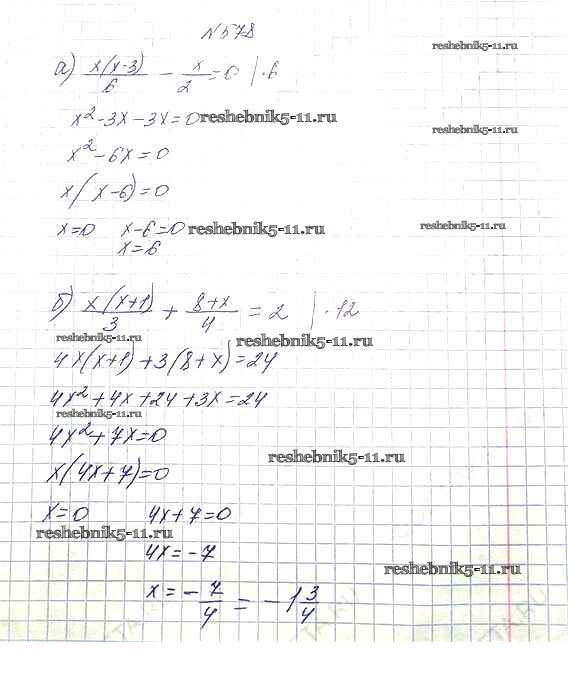 №578
reshebnik5-11.ru
а) x(x-3)/6 - x/2 = 0 | ·6
x² - 3x - 3x = 0 reshebnik5-11.ru
reshebnik5-11.ru
x² - 6x = 0
x(x-6) = 0
x=0 x-6=0 reshebnik5-11.ru reshebnik5-11.ru
x=6
б) x(x+1)/3 + 8+x/4 = 2 | ·12
reshebnik5-11.ru reshebnik5-11.ru
4x(x+1) + 3(8+x) = 24
4x² + 4x + 24 + 3x = 24
reshebnik5-11.ru
4x² + 7x = 0
reshebnik5-11.ru
x(4x+7) = 0
x=0 4x+7=0
reshebnik5-11.ru
4x = -7
reshebnik5-11.ru
x = - 7/4 = - 1 3/4